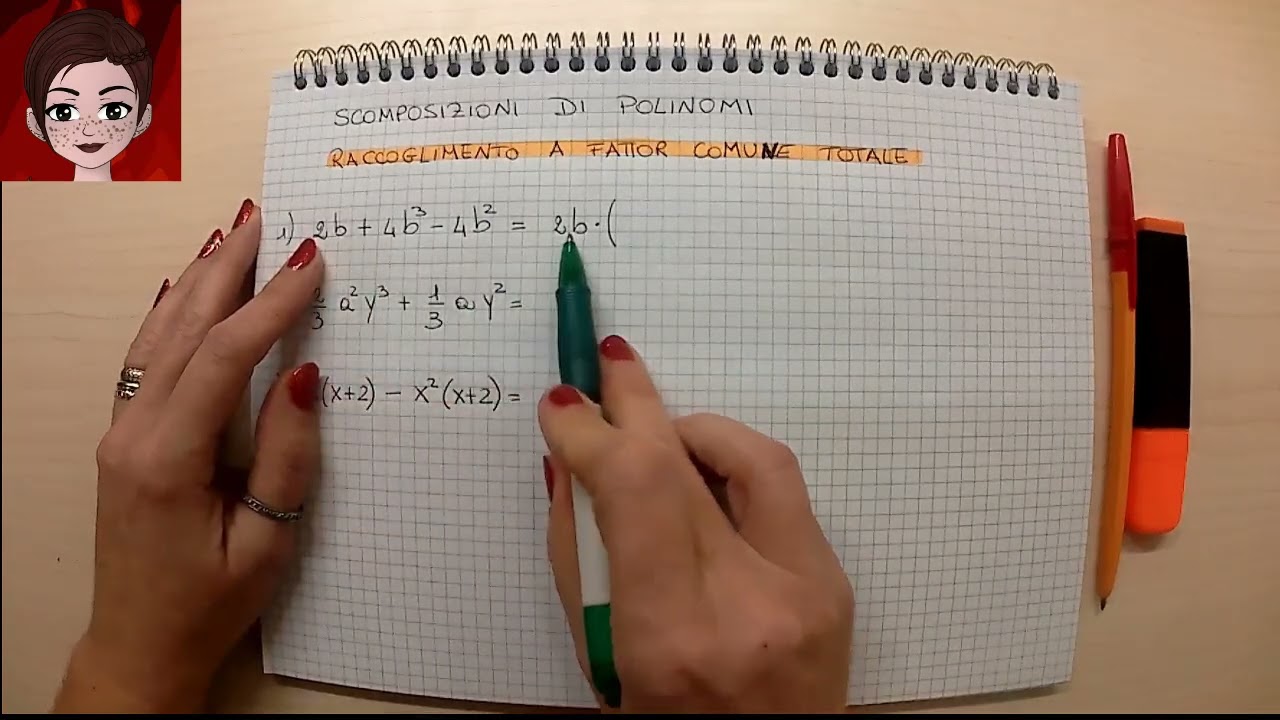 SCOMPOSIZIONI DI POLINOMI
RACCOGLIMENTO A FATTOR COMUNE TOTALE
1) 2b + 4b³ - 4b² = 2b · (
2/3 a²y³ + 1/3 a y² =
(x+2) - x²(x+2) =